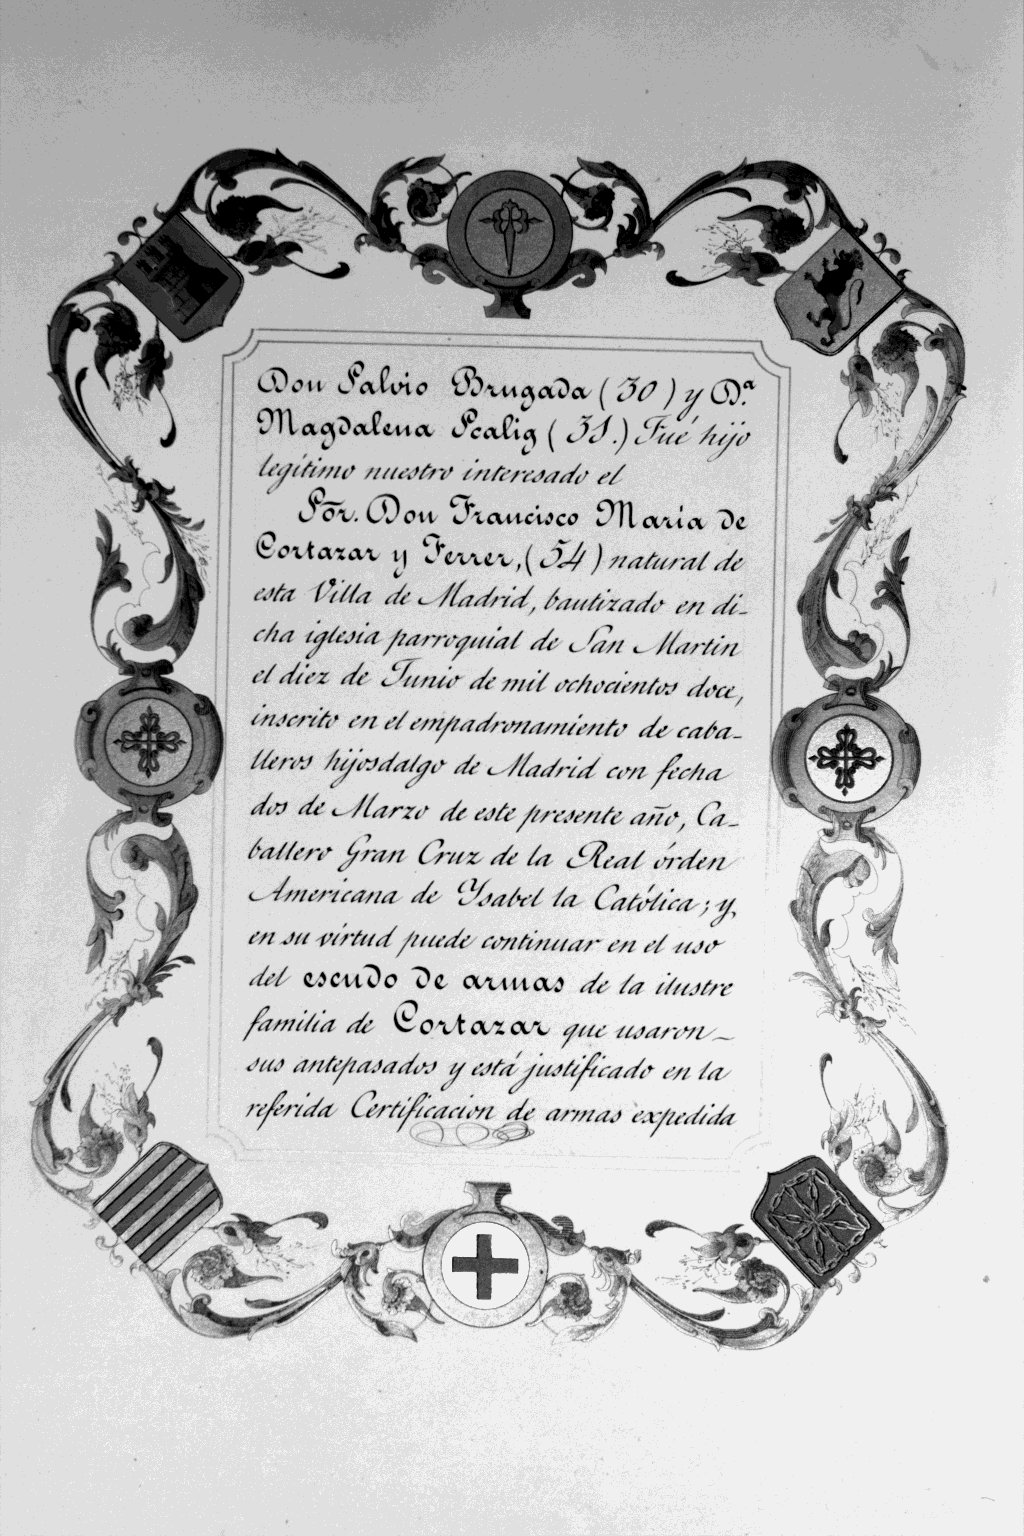 Don Salvio Brugada (30) y D.ª
Magdalena Scalig (31.) Fué hijo
legítimo nuestro interesado el
Sõr. Don Francisco María de
Cortazar y Ferrer, (54) natural de
esta Villa de Madrid, bautizado en di-
cha iglesia parroquial de San Martin
el diez de Junio de mil ochocientos doce,
inscrito en el empadronamiento de caba-
lleros hijosdalgo de Madrid con fecha
dos de Marzo de este presente año, Ca-
ballero Gran Cruz de la Real órden
Americana de Ysabel la Católica; y,
en su virtud puede continuar en el uso
del escudo de armas de la ilustre
familia de Cortazar que usaron
sus antepasados y está justificado en la
referida Certificacion de armas expedida